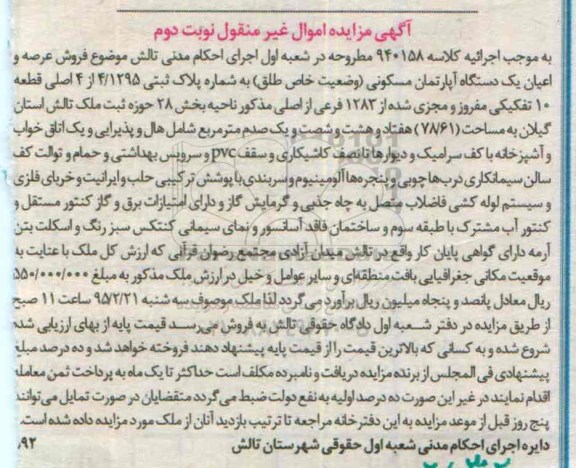 آگهی مزایده اموال غیر منقول نوبت دوم
به موجب اجرائیه کلاسه ۹۴۰۱۵۸ مطروحه در شعبه اول اجرای احکام مدنی تالش موضوع فروش عرصه و
اعیان یک دستگاه آپارتمان مسکونی (وضعیت خاص طلق) به شماره پلاک ثبتی ۴/۱۲۹۵ از ۴ اصلی قطعه
۱۰ تفکیکی مفروز و مجزی شده از ۱۲۸۳ فرعی از اصلی مذکور ناحیه بخش ۲۸ حوزه ثبت ملک تالش استان
گیلان به مساحت (۷۸/۶۱) هفتاد و هشت و شصت و یک صدم مترمربع شامل هال و پذیرایی و یک اتاق خواب
و آشپزخانه با کف سرامیک و دیوارها تا نصف کاشیکاری و سقف pvc و سرویس بهداشتی و حمام و توالت کف
سالن سیمانکاری درب‌ها چوبی و پنجره‌ها آلومینیوم و سربندی با پوشش ترکیبی حلب و ایرانیت و خرپای فلزی
و سیستم لوله کشی فاضلاب متصل به چاه جذبی و گرمایش گاز و دارای امتیازات برق و گاز کنتور مستقل و
کنتور آب مشترک با طبقه سوم و ساختمان فاقد آسانسور و نمای سیمانی کنتکس سبز رنگ و اسکلت بتن
آرمه دارای گواهی پایان کار واقع در تالش میدان آزادی مجتمع رضوان قرآنی که ارزش کل ملک با عنایت به
موقعیت مکانی جغرافیایی بافت منطقه‌ای و سایر عوامل و خیل در ارزش ملک مذکور به مبلغ ۵۵۰/۰۰۰/۰۰۰
ریال معادل پانصد و پنجاه میلیون ریال برآورد می‌گردد لذا ملک موصوف سه شنبه ۹۵/۲/۲۱ ساعت ۱۱ صبح
از طریق مزایده در دفتر شعبه اول دادگاه حقوقی تالش به فروش می‌رسد قیمت پایه از بهای ارزیابی شده
شروع شده و به کسانی که بالاترین قیمت را از قیمت پایه پیشنهاد دهند فروخته خواهد شد و ده درصد مبلغ
پیشنهادی فی المجلس از برنده مزایده دریافت و نامبرده مکلف است حداکثر تا یک ماه به پرداخت ثمن معامله
اقدام نمایند در غیر این صورت ده درصد اولیه به نفع دولت ضبط می‌گردد متقاضیان در صورت تمایل می‌توانند
پنج روز قبل از موعد مزایده به این دفترخانه مراجعه تا ترتیب بازدید آنان از ملک مورد مزایده داده شده است.
دایره اجرای احکام مدنی شعبه اول حقوقی شهرستان تالش ۹۲